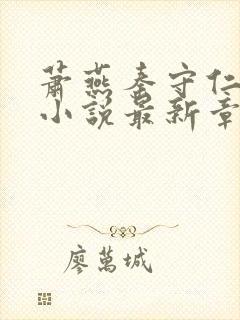 萧燕秦守仁
小说最新章
廖万城